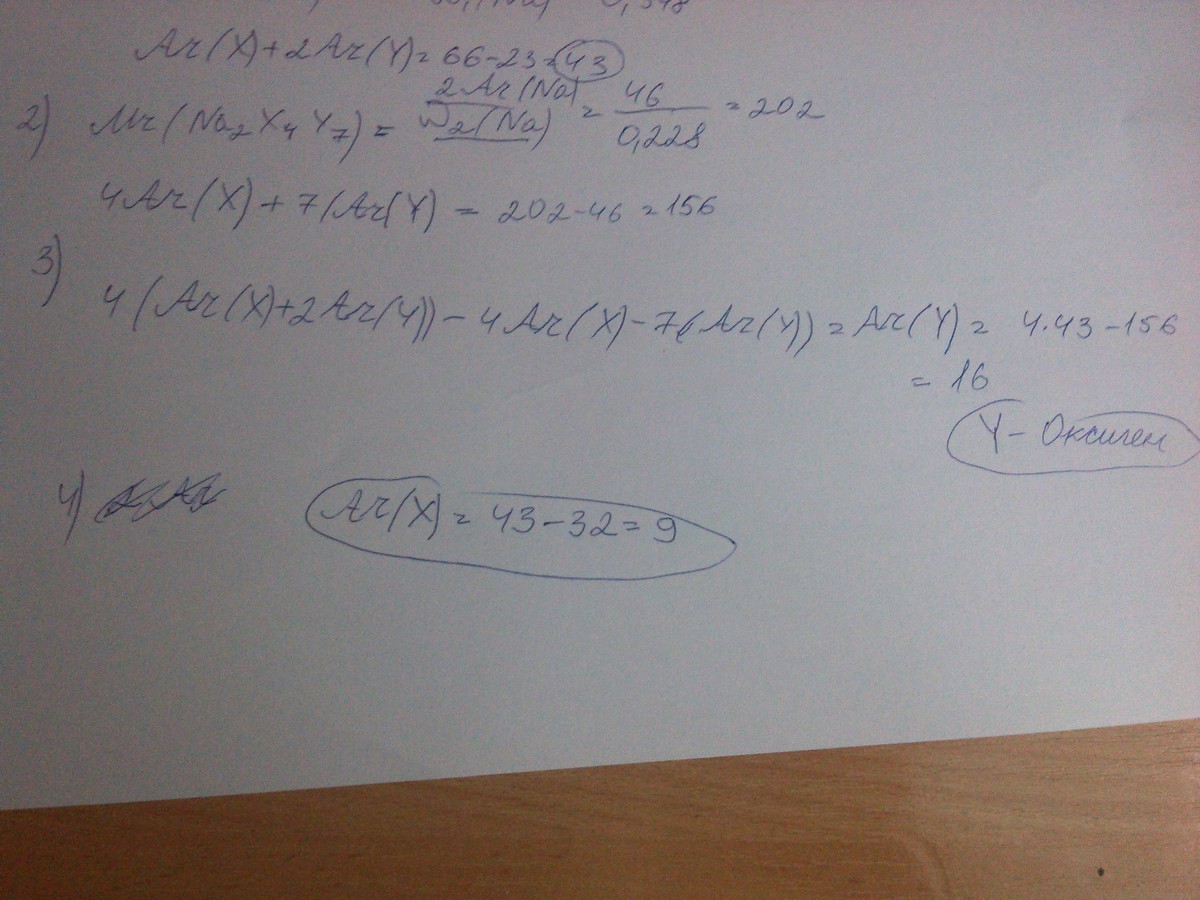 0,348
Ar(X)+2Ar(Y)=66-23=43
2) Mr(Na2X4Y7) = 2Ar(Na) / W2(Na) = 46 / 0,228 = 202
4Ar(X)+7(Ar(Y) = 202-46=156
3)
4(Ar(X)+2Ar(Y))-4Ar(X)-7(Ar(Y))=Ar(Y)= 4·43-156
= 16
Y- Оксиген
4) Ar(X)=43-32=9